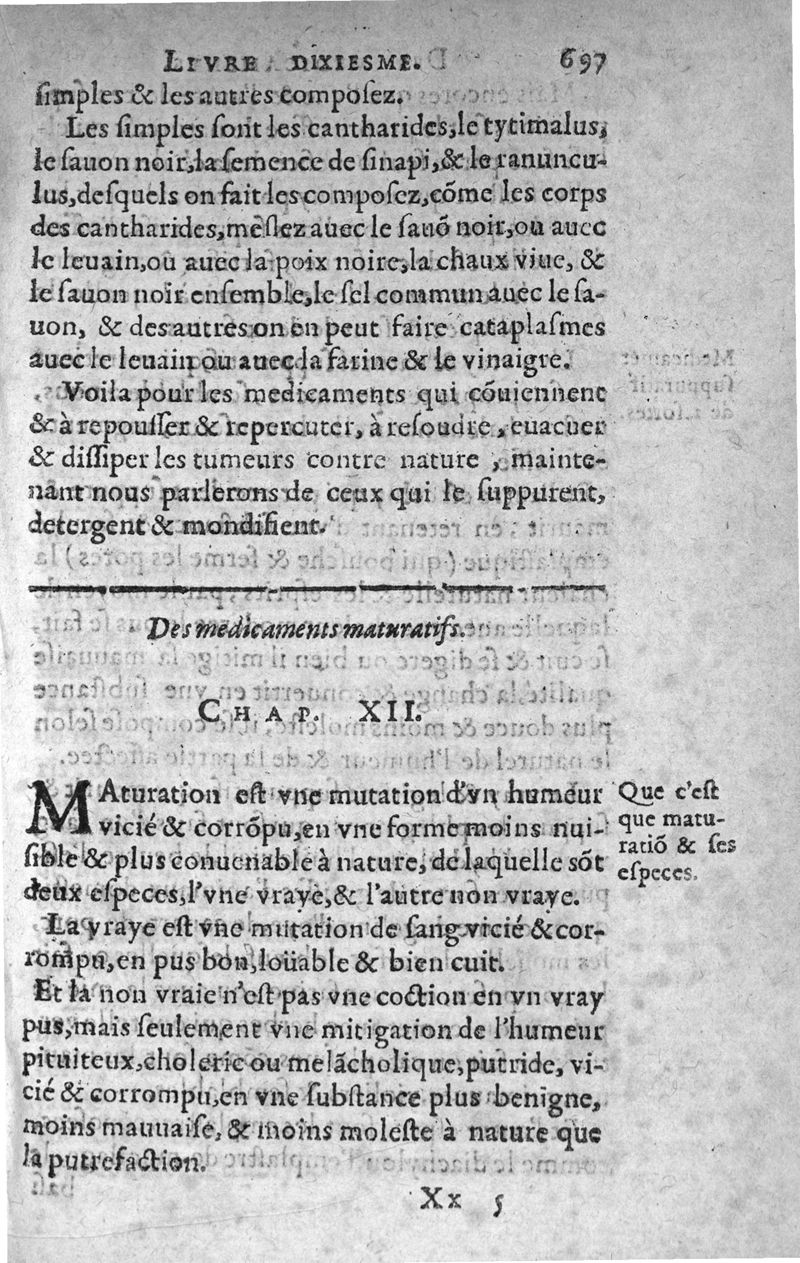 LIVRE DIXIESME. 697
ſimples & les autres compoſez.
Les ſimples ſont les cantharides,le tytimalus,
le ſauon noir,la ſemence de ſinapi,& le ranuncu-
lus,deſquels on fait les compoſez,cõme les corps
des cantharides,meſlez auec le ſauõ noir,ou auec
le leuain,ou auec la poix noire,la chaux viue, &
le ſauon noir enſemble,le ſel commun auec le ſa-
uon, & des autres on en peut faire cataplaſmes
auec le leuain ou auec la farine & le vinaigre.
Voila pour les medicaments qui cõuiennent
& à repouſſer & repercuter, à reſoudre, euacuer
& diſſiper les tumeurs contre nature, mainte-
nant nous parlerons de ceux qui le ſuppurent,
detergent & mondifient.
Des medicaments maturatifs.
CHAP. XII.
MAturation eſt vne mutation d'vn humeur
vicié & corrõpu,en vne forme moins nui-
ſible & plus conuenable à nature, de laquelle sõt
deux eſpeces,l'vne vraye,& l'autre non vraye.
Que c'eſt
que matu-
ratiõ & ſes
eſpeces.
La vraye eſt vne mutation de ſang vicié & cor-
rompu,en pus bon,loüable & bien cuit.
Et la non vraie n'eſt pas vne coction en vn vray
pus,mais ſeulement vne mitigation de l'humeur
pituiteux,choleric ou melãcholique,putride, vi-
cié & corrompu,en vne ſubſtance plus benigne,
moins mauuaiſe, & moins moleſte à nature que
la putrefaction.
Xx 5